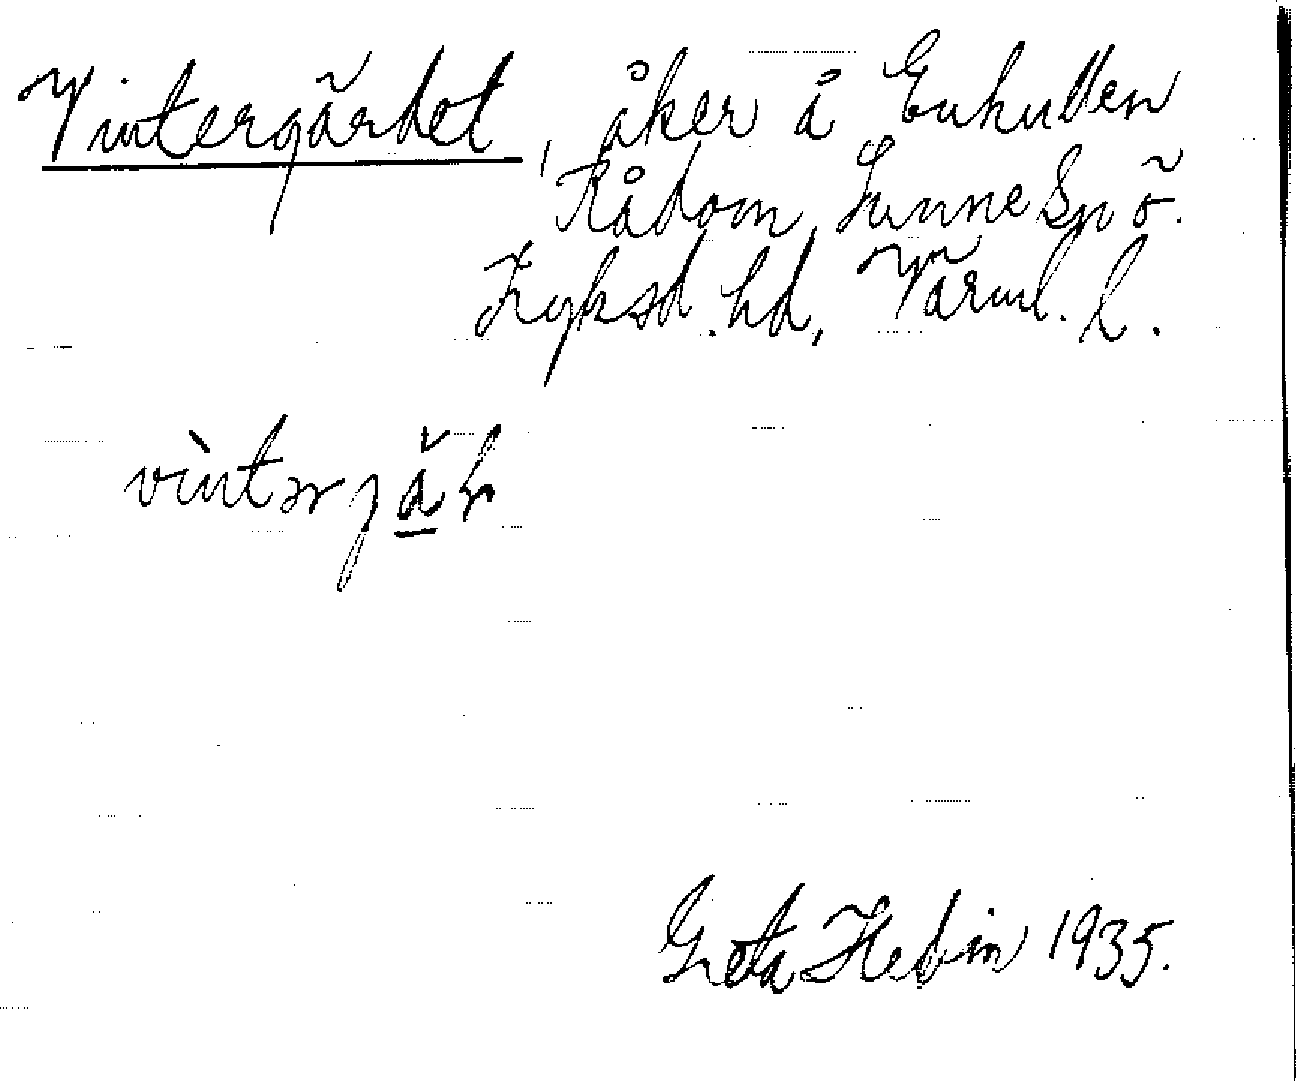 Vintergärdet, åker å Enkullen
Rådom, Sunne sn ö.
Fryksd. hd, Värml. l.
Greta Hedin 1935.